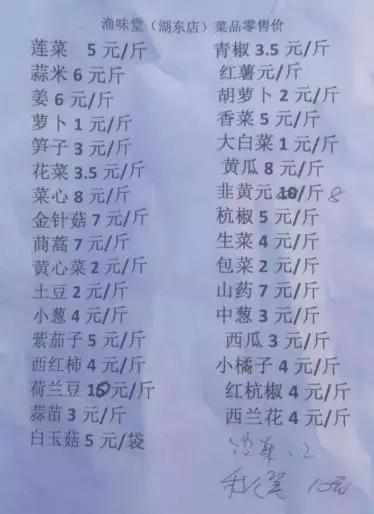 渔味堂（湖东店）菜品零售价
莲菜 5元/斤
蒜米6元/斤
姜6元/斤
萝卜1元/斤
笋子3元/斤
花菜3.5元/斤
菜心8元/斤
金针菇7元/斤
茼蒿7元/斤
黄心菜2元/斤
土豆2元/斤
小葱4元/斤
紫茄子5元/斤
西红柿4元/斤
荷兰豆10元/斤
蒜苗3元/斤
白玉菇5元/袋
青椒3.5元/斤
红薯元/斤
胡萝卜2元/斤
香菜5元/斤
大白菜1元/斤
黄瓜8元/斤
韭黄元10/斤 8
杭椒5元/斤
生菜4元/斤
包菜2元/斤
山药7元/斤
中葱3元/斤
西瓜3元/斤
小橘子4元/斤
红杭椒4元/斤
西兰花4元/斤
10元